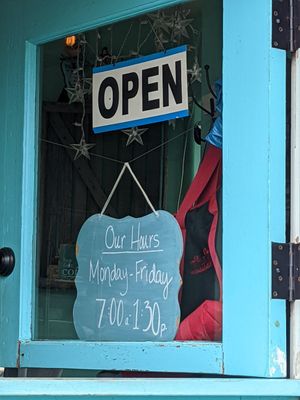 OPEN
Our Hours
Monday-Friday
7:00a-1:30p